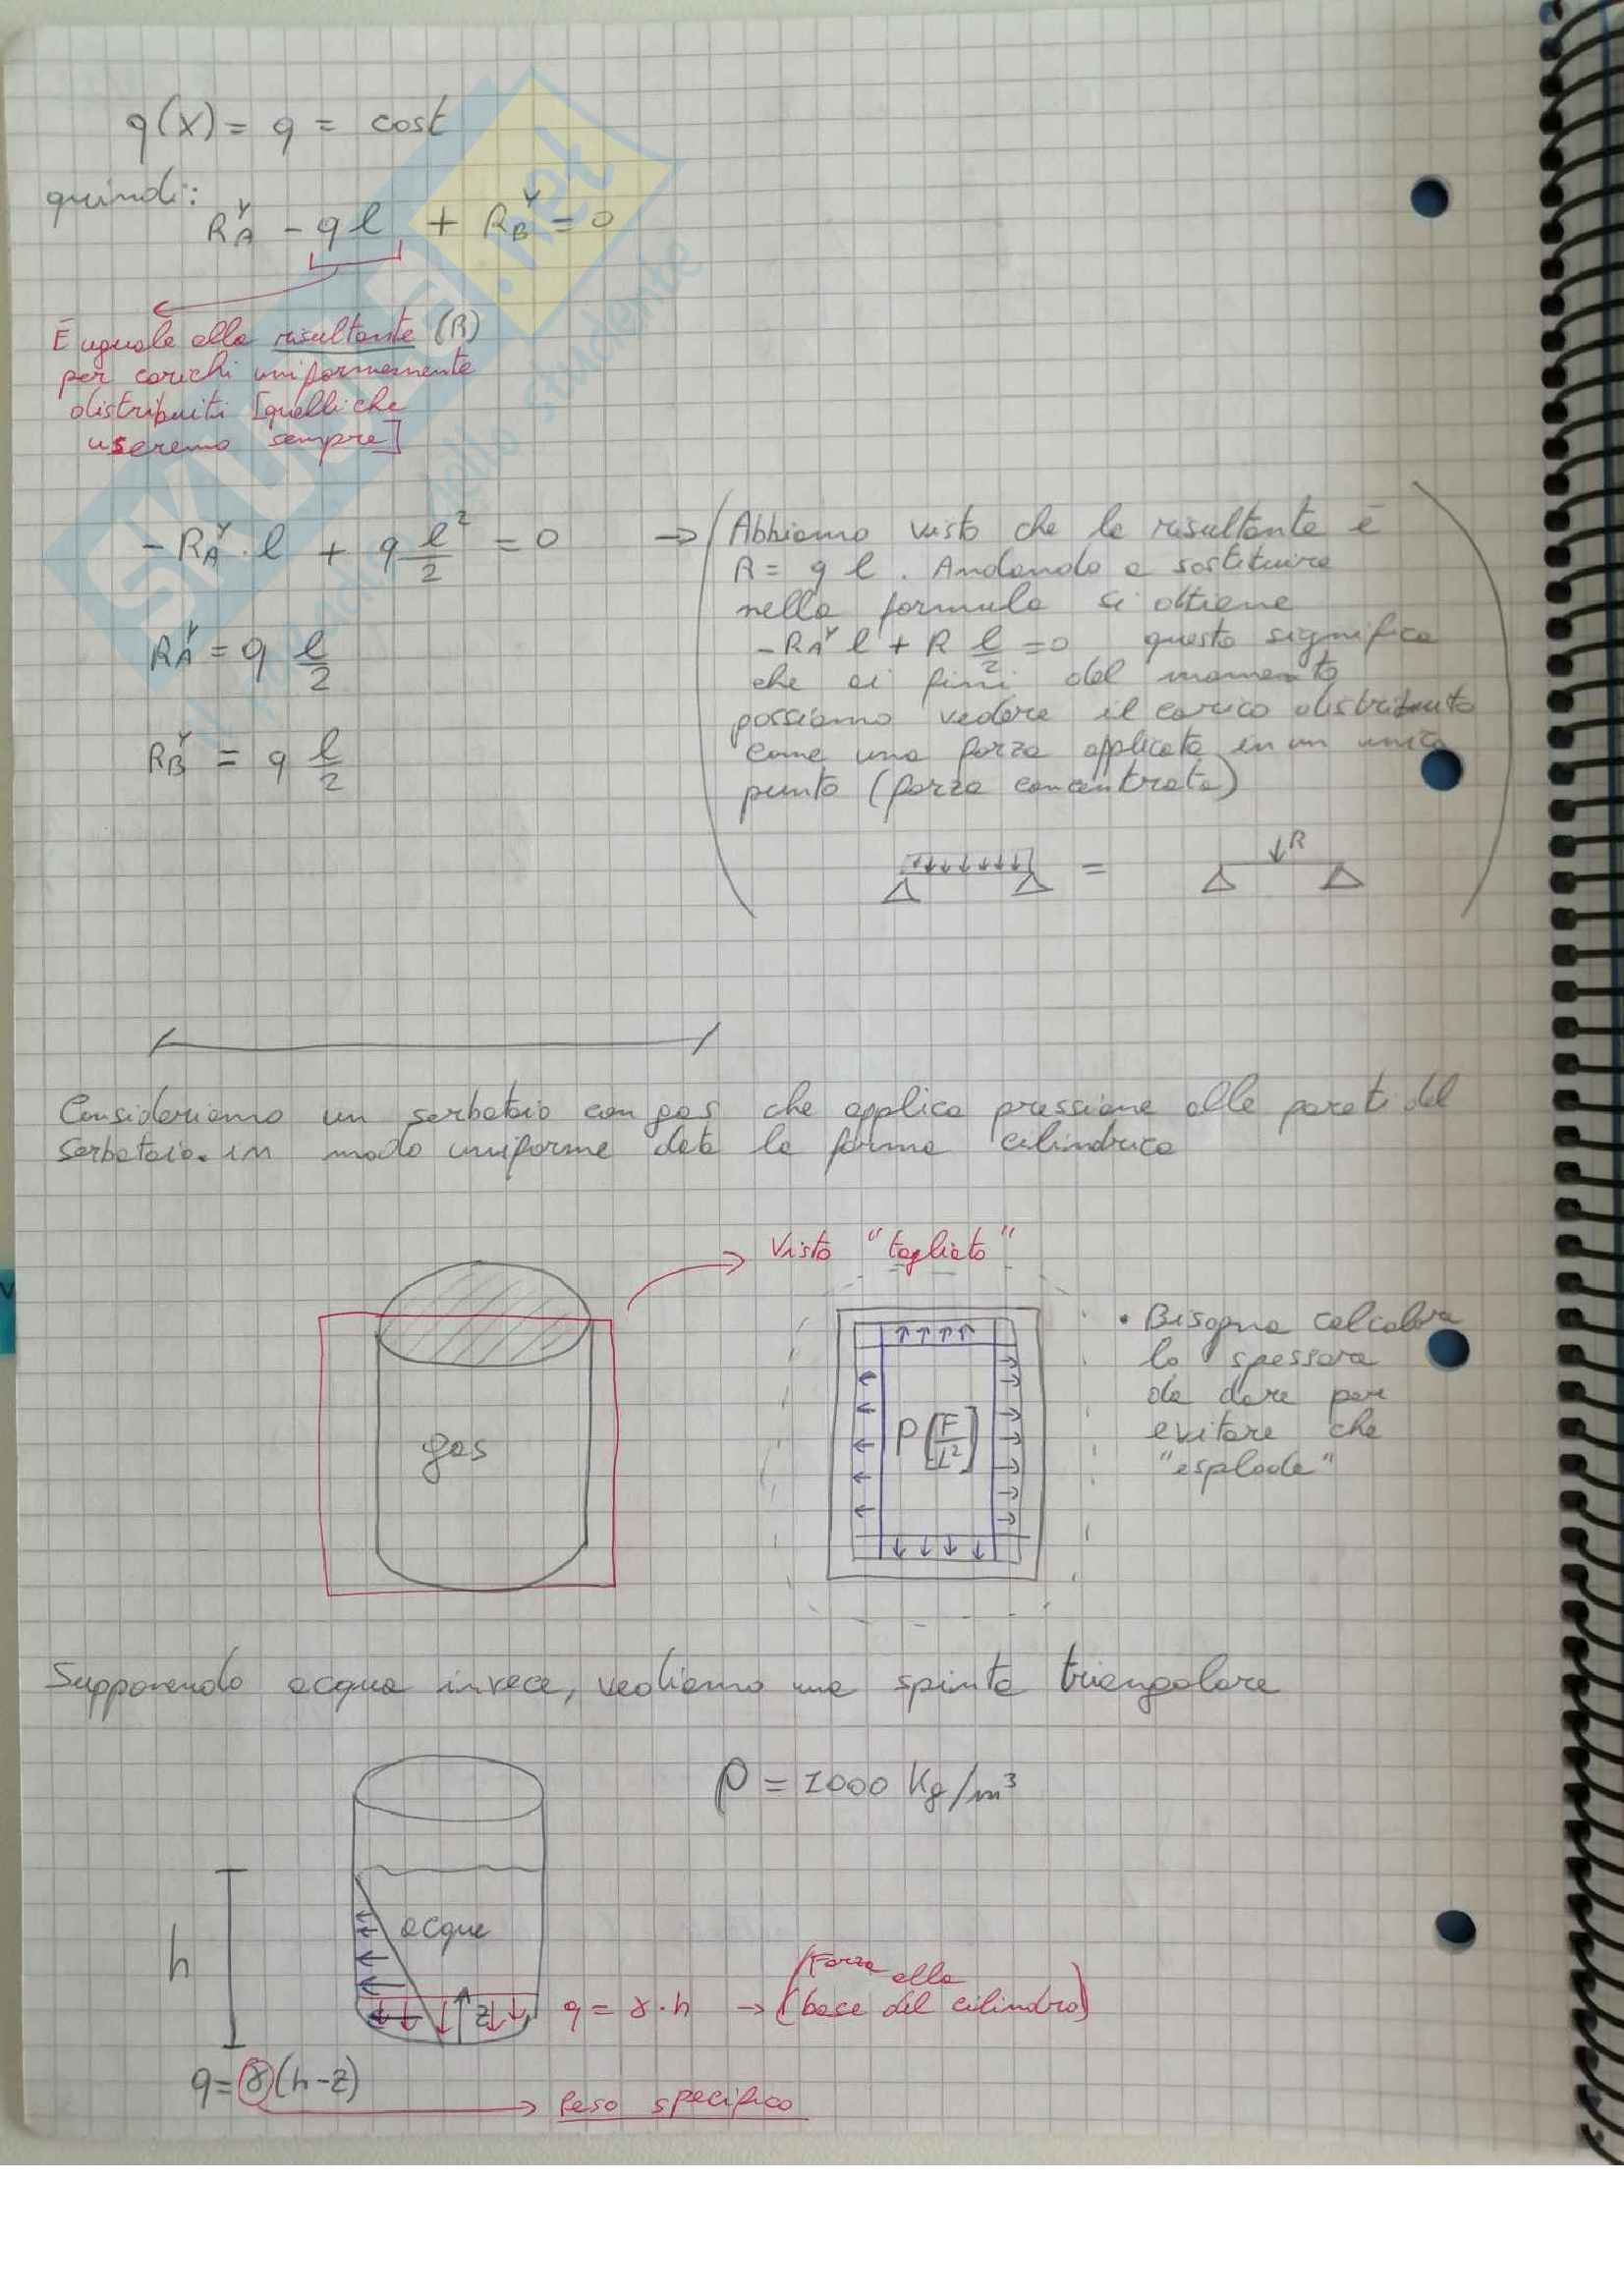 q(x) = q = cost
quindi:
R_A^Y - ql + R_B^Y = 0
È uguale alla risultante (R)
per carichi uniformemente
distribuiti [quelli che
useremo sempre]
-R_A^Y · l + q l²/2 = 0
R_A^Y = q l/2
R_B^Y = q l/2
→ (Abbiamo visto che la risultante è
R = q l. Andando a sostituire
nella formula si ottiene
-R_A^Y l + R l/2 = 0 questo significa
che ai fini del momento
possiamo vedere il carico distribuito
come una forza applicata in un unico
punto (forza concentrata)
= R
Consideriamo un serbatoio con gas che applica pressione alle pareti del
serbatoio in modo uniforme data la forma cilindrica
Visto "tagliato"
gas
P [F/L²]
• Bisogna calcolare
lo spessore
da dare per
evitare che
"esplode"
Supponendo acqua invece, vediamo una spinta triangolare
ρ = 1000 Kg/m³
h
acqua
z
q = γ · h → (Forza alla
base del cilindro)
q = γ(h-z)
→ Peso specifico
SKUOLA.net